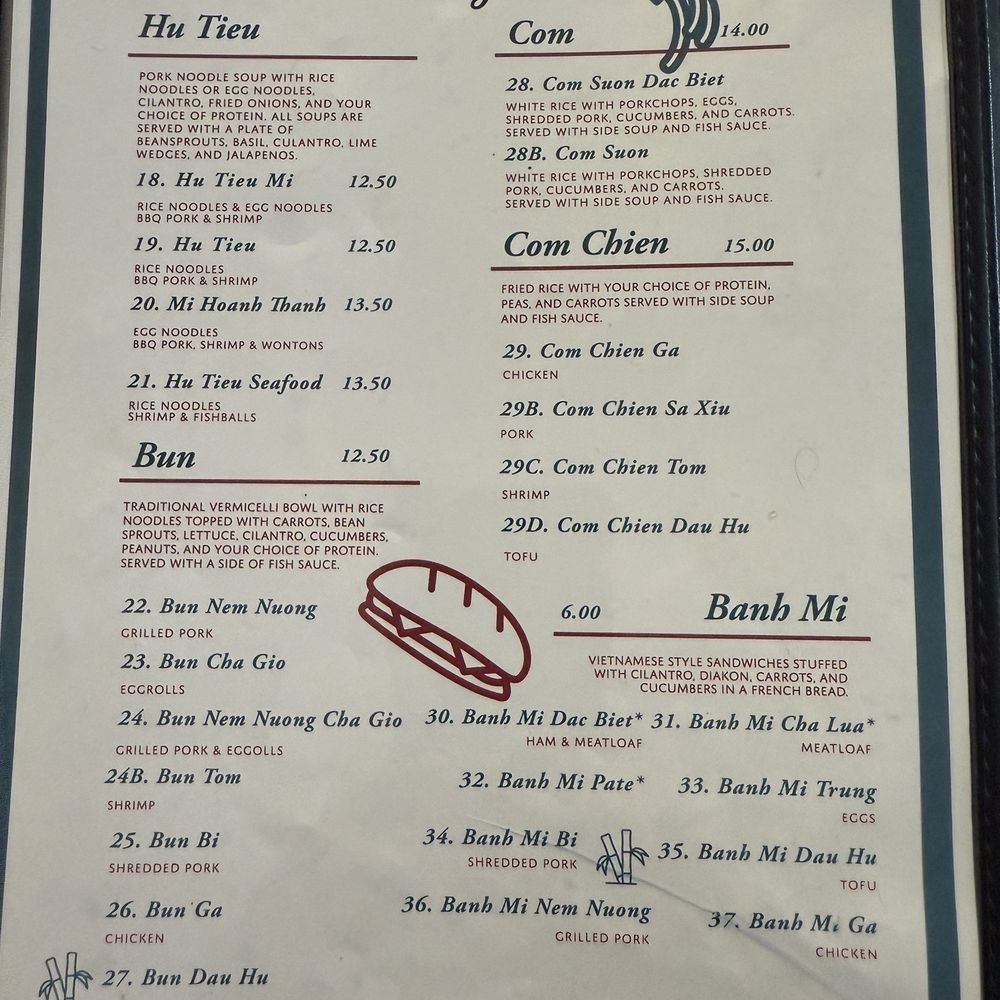 Hu Tieu
PORK NOODLE SOUP WITH RICE
NOODLES OR EGG NOODLES,
CILANTRO, FRIED ONIONS, AND YOUR
CHOICE OF PROTEIN. ALL SOUPS ARE
SERVED WITH A PLATE OF
BEANSPROUTS, BASIL, CULANTRO, LIME
WEDGES, AND JALAPENOS.
18. Hu Tieu Mi 12.50
RICE NOODLES & EGG NOODLES
BBQ PORK & SHRIMP
19. Hu Tieu 12.50
RICE NOODLES
BBQ PORK & SHRIMP
20. Mi Hoanh Thanh 13.50
EGG NOODLES
BBQ PORK, SHRIMP & WONTONS
21. Hu Tieu Seafood 13.50
RICE NOODLES
SHRIMP & FISHBALLS
Bun 12.50
TRADITIONAL VERMICELLI BOWL WITH RICE
NOODLES TOPPED WITH CARROTS, BEAN
SPROUTS, LETTUCE, CILANTRO, CUCUMBERS,
PEANUTS, AND YOUR CHOICE OF PROTEIN.
SERVED WITH A SIDE OF FISH SAUCE.
22. Bun Nem Nuong
GRILLED PORK
23. Bun Cha Gio
EGGROLLS
24. Bun Nem Nuong Cha Gio
GRILLED PORK & EGGOLLS
24B. Bun Tom
SHRIMP
25. Bun Bi
SHREDDED PORK
26. Bun Ga
CHICKEN
27. Bun Dau Hu
Com 14.00
28. Com Suon Dac Biet
WHITE RICE WITH PORKCHOPS, EGGS,
SHREDDED PORK, CUCUMBERS, AND CARROTS.
SERVED WITH SIDE SOUP AND FISH SAUCE.
28B. Com Suon
WHITE RICE WITH PORKCHOPS, SHREDDED
PORK, CUCUMBERS, AND CARROTS.
SERVED WITH SIDE SOUP AND FISH SAUCE.
Com Chien 15.00
FRIED RICE WITH YOUR CHOICE OF PROTEIN,
PEAS, AND CARROTS SERVED WITH SIDE SOUP
AND FISH SAUCE.
29. Com Chien Ga
CHICKEN
29B. Com Chien Sa Xiu
PORK
29C. Com Chien Tom
SHRIMP
29D. Com Chien Dau Hu
TOFU
6.00 Banh Mi
VIETNAMESE STYLE SANDWICHES STUFFED
WITH CILANTRO, DIAKON, CARROTS, AND
CUCUMBERS IN A FRENCH BREAD.
30. Banh Mi Dac Biet* 31. Banh Mi Cha Lua*
HAM & MEATLOAF MEATLOAF
32. Banh Mi Pate* 33. Banh Mi Trung
EGGS
34. Banh Mi Bi 35. Banh Mi Dau Hu
SHREDDED PORK TOFU
36. Banh Mi Nem Nuong 37. Banh Mi Ga
GRILLED PORK CHICKEN